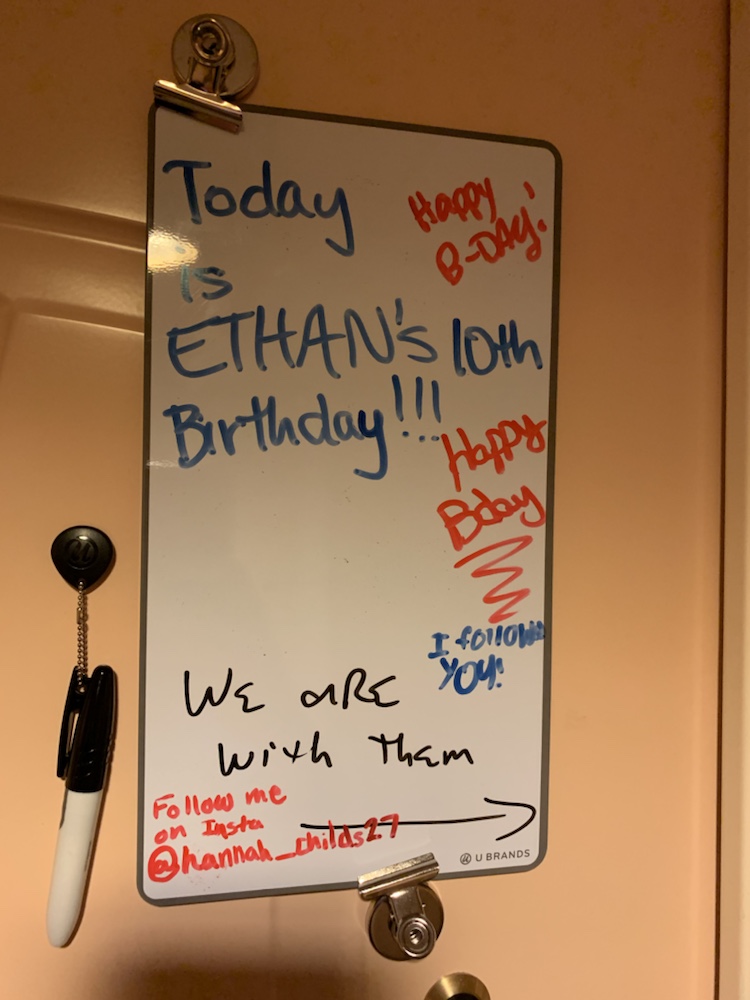 Today
is
ETHAN's 10th
Birthday!!!
Happy
B-DAY!
Happy
Bday
I followed
YOU!
WE ARE
with them
Follow me
on Insta
@hannah_childs27
U BRANDS